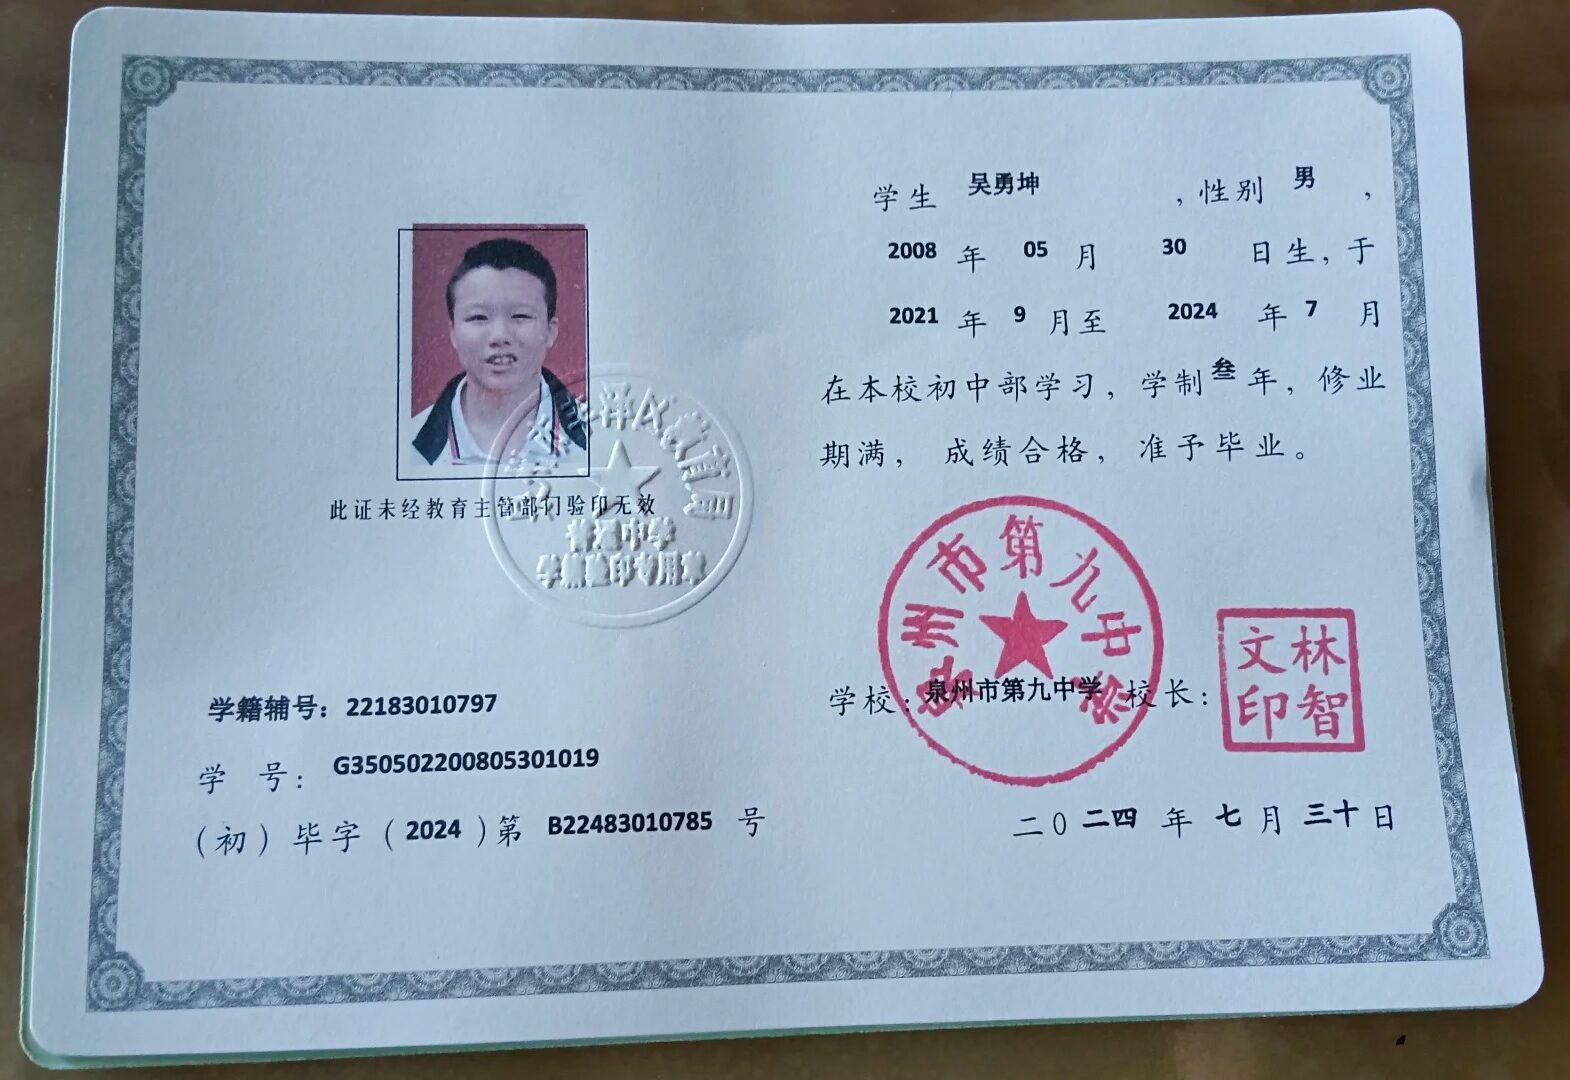 此证未经教育主管部门验印无效
泽区教育局
普通中学
学籍验印专用章
学籍辅号：22183010797
学 号：G350502200805301019
（初）毕字（2024）第 B22483010785 号
学生 吴勇坤 ，性别 男 ，
2008 年 05 月 30 日生，于
2021 年 9 月至 2024 年 7 月
在本校初中部学习，学制叁年，修业
期满， 成绩合格，准予毕业。
泉州市第九中学
学校：泉州市第九中学 校长：
林智
文印
二0二四 年 七 月 三十 日